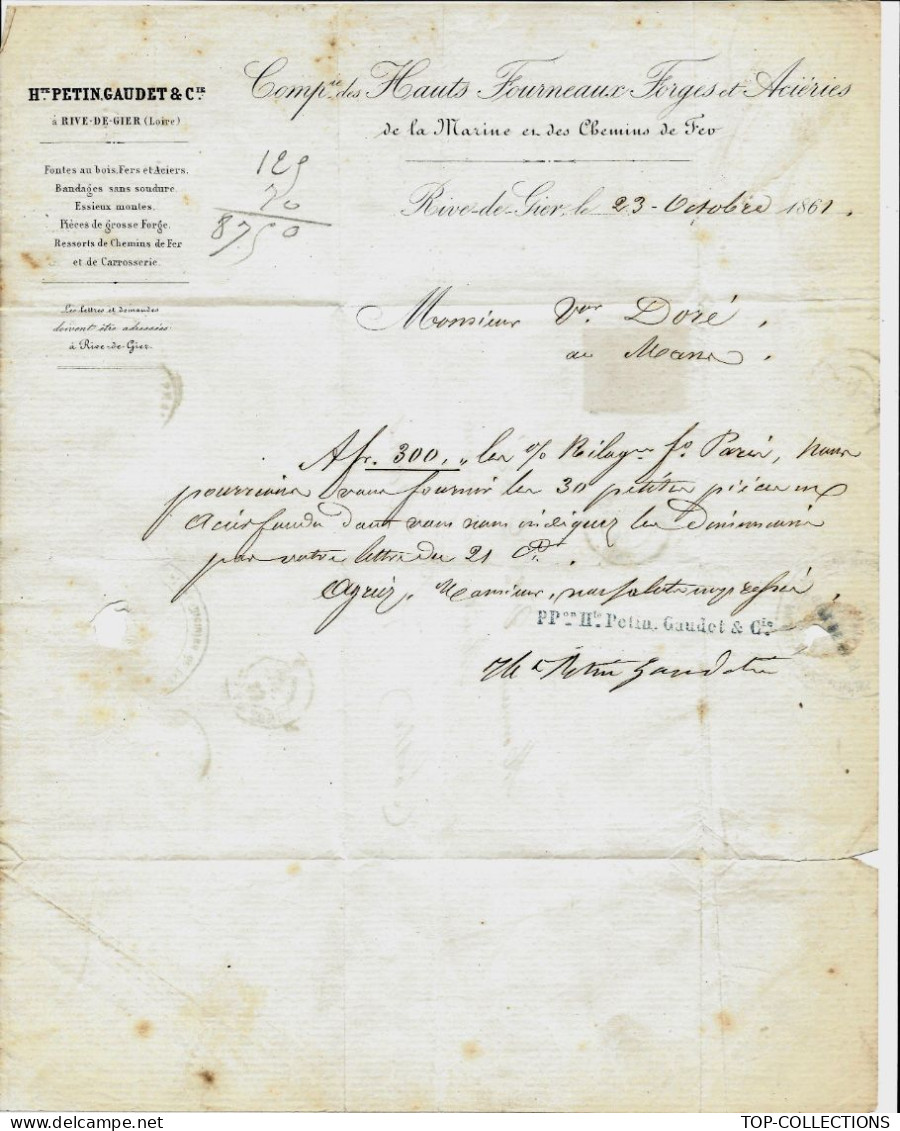 Hte PETIN, GAUDET & Cie
à RIVE-DE-GIER (Loire)
Fontes au bois, Fers et Aciers.
Bandages sans soudure.
Essieux montés.
Pièces de grosse Forge.
Ressorts de Chemins de Fer
et de Carrosserie.
Les lettres et demandes
doivent être adressées
à Rive-de-Gier.
Compie des Hauts Fourneaux Forges et Aciéries
de la Marine et des Chemins de Fer
125
70
87.50
Rive-de-Gier, le 23 Octobre 1861.
Monsieur Vor Doré,
au Mans.
A fr. 300, " les % Kilogr. fo Paris, nous
pourrions vous fournir les 30 petites pièces en
Acier fondu dont vous nous indiquez les dimensions
par votre lettre du 21 Ct.
Agréez, Monsieur, nos salutons empressées
PPon Hte Petin, Gaudet & Cie
Petin Gaudet
TOP-COLLECTIONS